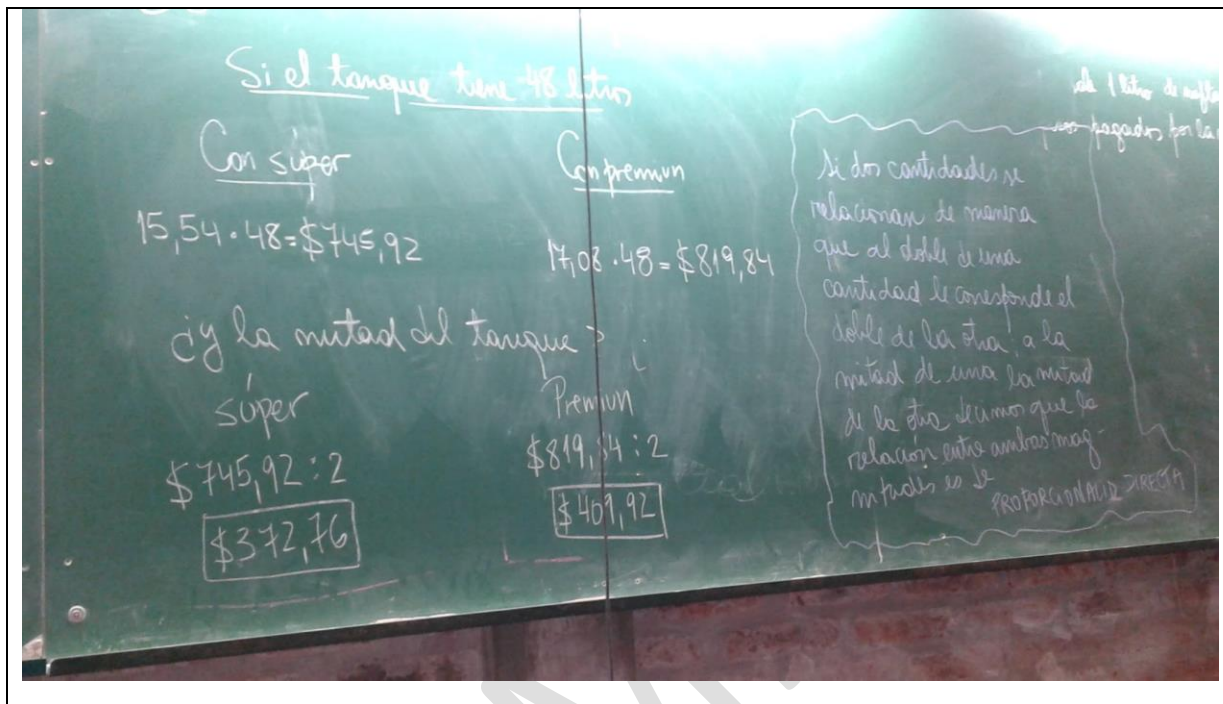 Si el tanque tiene 48 litros
Con súper
15,54 . 48 = $745,92
Con premiun
17,08 . 48 = $819,84
¿y la mitad del tanque?
súper
$745,92 : 2
$372,76
Premiun
$819,84 : 2
$409,92
de 1 litro de nafta
pagados por la
Si dos cantidades se
relacionan de manera
que al doble de una
cantidad le corresponde el
doble de la otra, a la
mitad de una la mitad
de la otra decimos que la
relación entre ambas mag-
nitudes es de
PROPORCIONALID DIRECTA